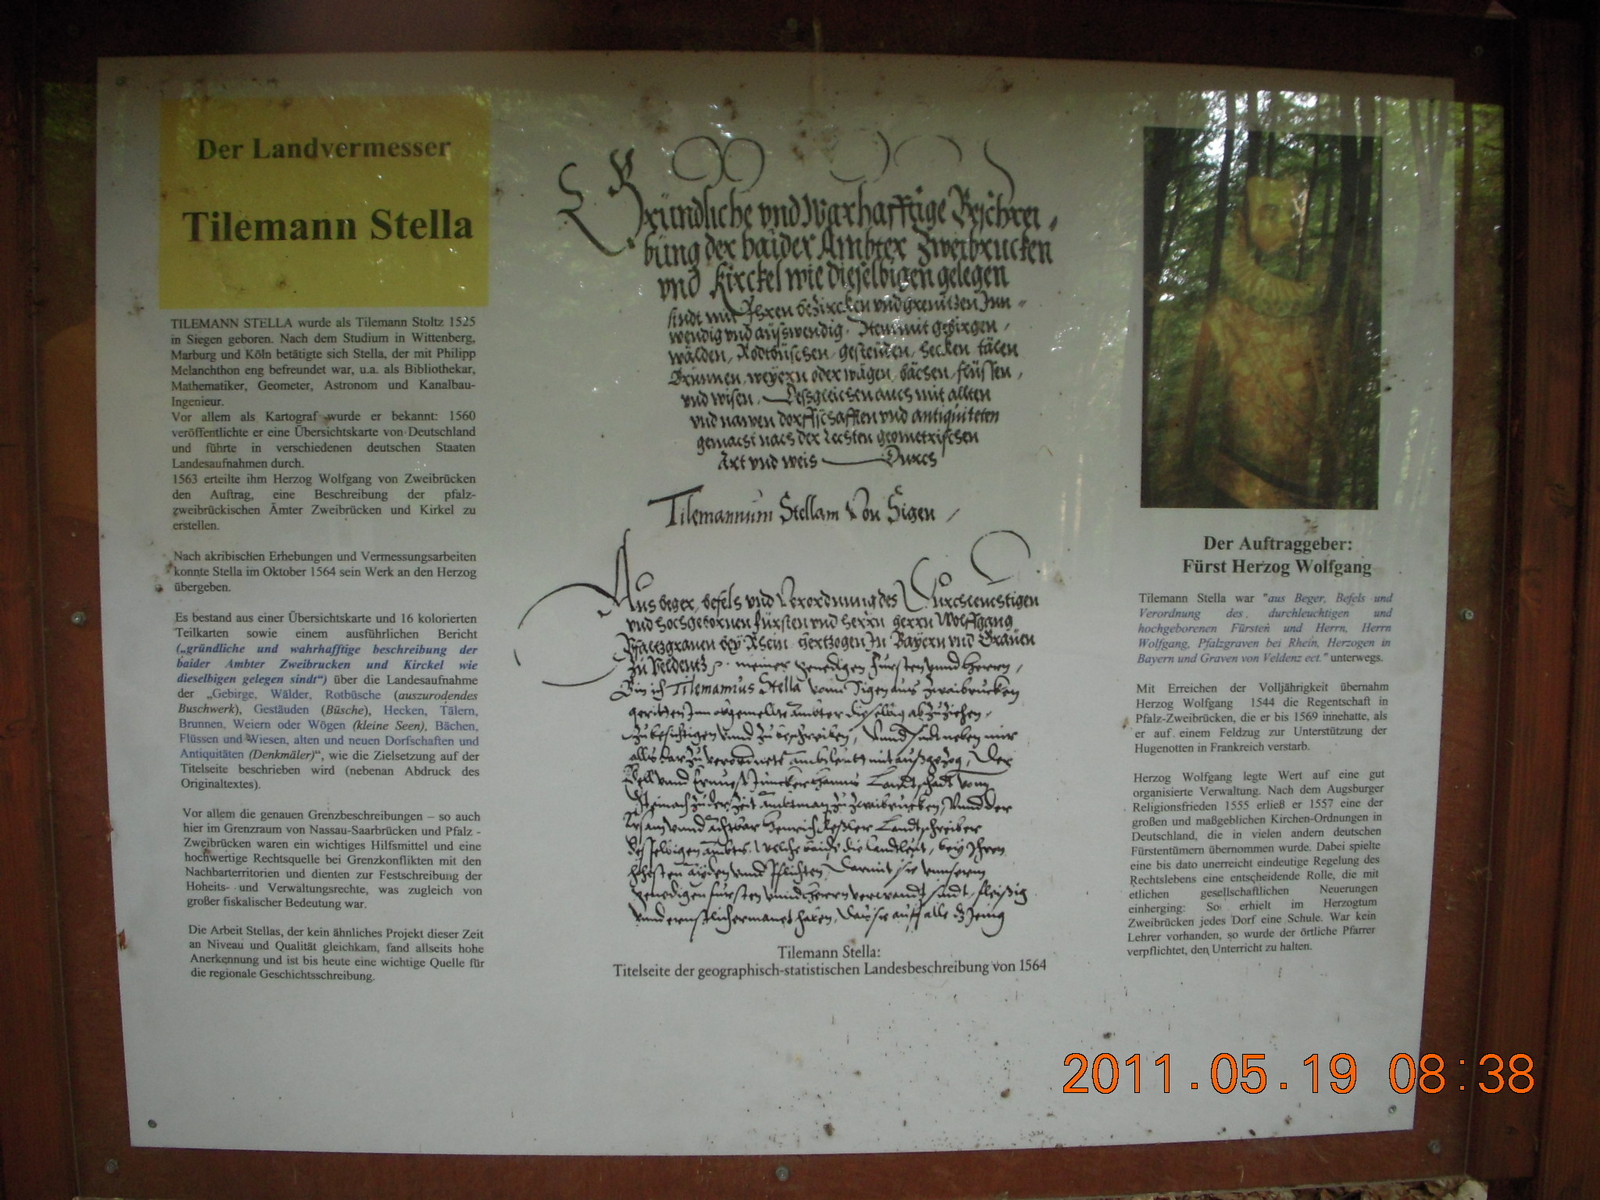 Der Landvermesser
Tilemann Stella
TILEMANN STELLA wurde als Tilemann Stoltz 1525
in Siegen geboren. Nach dem Studium in Wittenberg,
Marburg und Köln betätigte sich Stella, der mit Philipp
Melanchthon eng befreundet war, u.a. als Bibliothekar,
Mathematiker, Geometer, Astronom und Kanalbau-
Ingenieur.
Vor allem als Kartograf wurde er bekannt: 1560
veröffentlichte er eine Übersichtskarte von Deutschland
und führte in verschiedenen deutschen Staaten
Landesaufnahmen durch.
1563 erteilte ihm Herzog Wolfgang von Zweibrücken
den Auftrag, eine Beschreibung der pfalz-
zweibrückischen Ämter Zweibrücken und Kirkel zu
erstellen.
Nach akribischen Erhebungen und Vermessungsarbeiten
konnte Stella im Oktober 1564 sein Werk an den Herzog
übergeben.
Es bestand aus einer Übersichtskarte und 16 kolorierten
Teilkarten sowie einem ausführlichen Bericht
(„gründliche und wahrhafftige beschreibung der
baider Ambter Zweibrucken und Kirckel wie
dieselbigen gelegen sindt“) über die Landesaufnahme
der „Gebirge, Wälder, Rotbüsche (auszurodendes
Buschwerk), Gestäuden (Büsche), Hecken, Tälern,
Brunnen, Weiern oder Wögen (kleine Seen), Bächen,
Flüssen und Wiesen, alten und neuen Dorfschaften und
Antiquitäten (Denkmäler)“, wie die Zielsetzung auf der
Titelseite beschrieben wird (nebenan Abdruck des
Originaltextes).
Vor allem die genauen Grenzbeschreibungen – so auch
hier im Grenzraum von Nassau-Saarbrücken und Pfalz -
Zweibrücken waren ein wichtiges Hilfsmittel und eine
hochwertige Rechtsquelle bei Grenzkonflikten mit den
Nachbarterritorien und dienten zur Festschreibung der
Hoheits- und Verwaltungsrechte, was zugleich von
großer fiskalischer Bedeutung war.
Die Arbeit Stellas, der kein ähnliches Projekt dieser Zeit
an Niveau und Qualität gleichkam, fand allseits hohe
Anerkennung und ist bis heute eine wichtige Quelle für
die regionale Geschichtsschreibung.
Gründliche vnd Warhafftige Beschrei-
bung der baider Ambter Zweibrucken
vnd Kirckel wie dieselbigen gelegen
sindt mit Ihren bezircken vnd grenitzen Inn-
wendig vnd aüsswendig. Item mit gebirgen,
wälden, Rodtbüschen, gesteüden, hecken tälen
Brünnen, weyern oder wägen, bächen, flüssen,
vnd wisen, Dessgleichen auch mit allten
vnd nawen dorffschafften vnd antiquiteten
gemacht nach der rechten geometrischen
Art vnd weis Durch
Tilemannum Stellam Von Sigen
Aus beger, befels vnd Verordnung des Durchleuchtigen
vnd hochgebornen fürsten vnd herrn herrn Wolffgang
Pfaltzgrauen bey Rhein hertzogen In Bayern vnd Grauen
zu Veldentz, meines genedigen fürsten vnnd herren,
Bin ich Tilemannus Stella vonn Sigen aus zwaibrucken
Tilemann Stella:
Titelseite der geographisch-statistischen Landesbeschreibung von 1564
Der Auftraggeber:
Fürst Herzog Wolfgang
Tilemann Stella war "aus Beger, Befels und
Verordnung des durchleuchtigen und
hochgeborenen Fürsten und Herrn, Herrn
Wolfgang, Pfalzgraven bei Rhein, Herzogen in
Bayern und Graven von Veldenz ect." unterwegs.
Mit Erreichen der Volljährigkeit übernahm
Herzog Wolfgang 1544 die Regentschaft in
Pfalz-Zweibrücken, die er bis 1569 innehatte, als
er auf einem Feldzug zur Unterstützung der
Hugenotten in Frankreich verstarb.
Herzog Wolfgang legte Wert auf eine gut
organisierte Verwaltung. Nach dem Augsburger
Religionsfrieden 1555 erließ er 1557 eine der
großen und maßgeblichen Kirchen-Ordnungen in
Deutschland, die in vielen andern deutschen
Fürstentümern übernommen wurde. Dabei spielte
eine bis dato unerreicht eindeutige Regelung des
Rechtslebens eine entscheidende Rolle, die mit
etlichen gesellschaftlichen Neuerungen
einherging: So erhielt im Herzogtum
Zweibrücken jedes Dorf eine Schule. War kein
Lehrer vorhanden, so wurde der örtliche Pfarrer
verpflichtet, den Unterricht zu halten.
2011.05.19 08:38